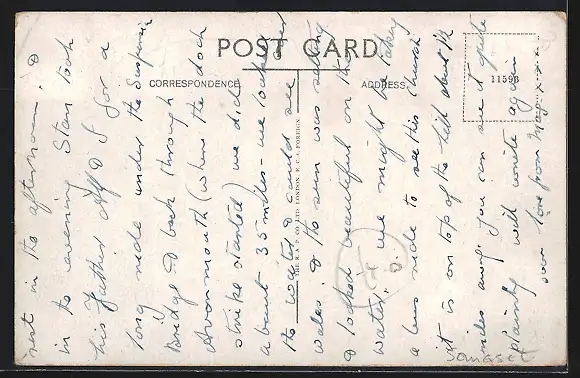 POST CARD
CORRESPONDENCE
ADDRESS
11598
THE R.A.P. CO LTD. LONDON. E.C.4 FOREIGN
rest in the afternoon. &
in the evening Stan took
his Father Alf & I for a
long ride under the Suspension
Bridge & back through
Avonmouth (where the dock
strike started) we did
about 35 miles - we looked over
the water & could see
Wales. & the sun was setting
& looked beautiful on the
water. we might be taking
a bus ride to see this Church
it is on top of the hill about 12
miles away. you can see it quite
plainly will write again
soon love from May x x x x
Somerset